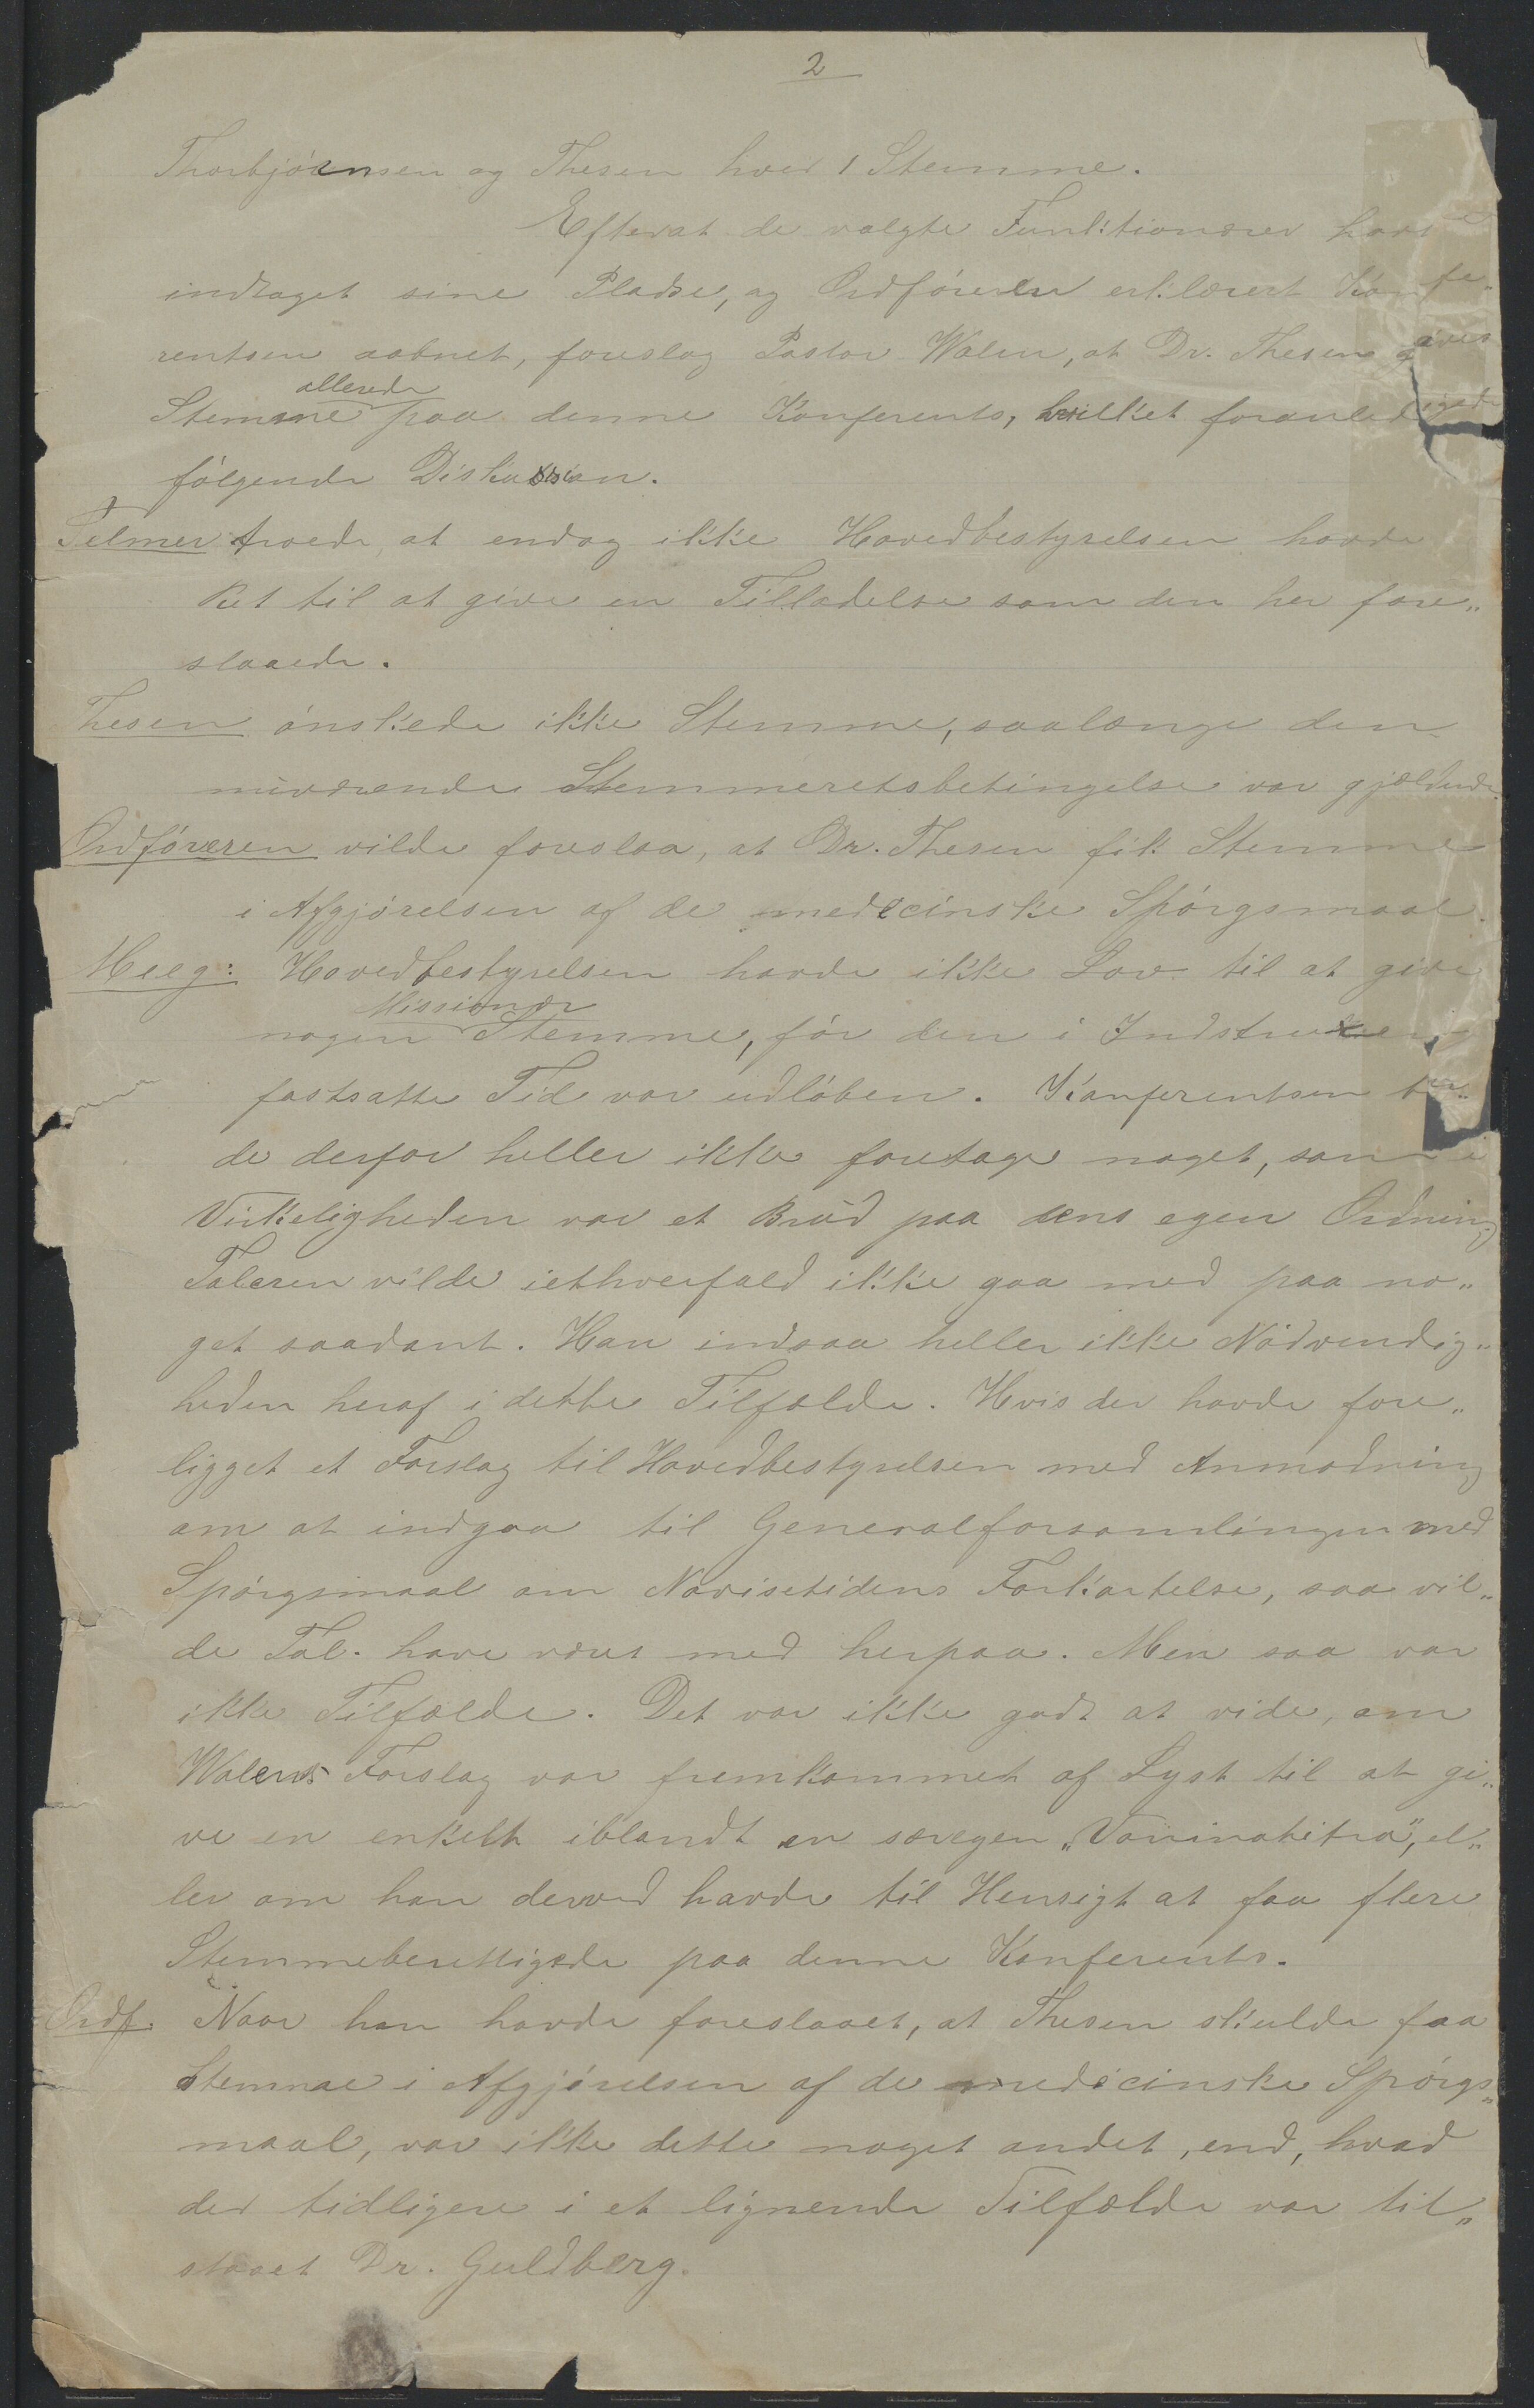 2
Thorbjørnsen og Thesen hver 1 Stemme.
Efterat de valgte Funktionærer havde
indtaget sine Pladse, og Ordføreren erklæret Konfe-
rentsen aabnet, foreslog Pastor Walen, at Dr. Thesen gives
allerede
Stemme paa denne Konferents, hvilket foranledigede
følgende Diskussion.
Selmer troede, at endog ikke Hovedbestyrelsen havde
Ret til at give en Tilladelse som den her fore„
slaaede.
Thesen ønskede ikke Stemme, saalænge den
nuværende Stemmeretsbetingelse var gjældende.
Ordføreren vilde foreslaa, at Dr. Thesen fik Stemme
i Afgjørelsen af de medicinske Spørgsmaal.
Meeg: Hovedbestyrelsen havde ikke Lov til at give
Missionær
nogen Stemme, før den i Instruxen
fastsatte Tid var udløben. Konferentsen bur„
de derfor heller ikke foretage noget, som i
Virkeligheden var et Brud paa dens egen Ordning
Taleren vilde iethvertfald ikke gaa med paa no„
get saadant. Han indsaa heller ikke Nødvendig„
heden heraf i dette Tilfælde. Hvis der havde fore„
ligget et Forslag til Hovedbestyrelsen med Anmodning
om at indgaa til Generalforsamlingen med
Spørgsmaal om Novisetidens Forkortelse, saa vil„
de Tal. have været med herpaa. Men saa var
ikke Tilfælde. Det var ikke godt at vide, om
Walens Forslag var fremkommet af Lyst til at gi„
ve en enkelt iblandt en særegen „Voninahitra", el„
ler om han derved havde til Hensigt at faa flere
Stemmeberettigede paa denne Konferents.
Ordf. Naar han havde foreslaaet, at Thesen skulde faa
Stemme i Afgjørelsen af de medicinske Spørgs„
maal, var ikke dette noget andet, end, hvad
der tidligere i et lignende Tilfælde var til„
staaet Dr. Guldberg.